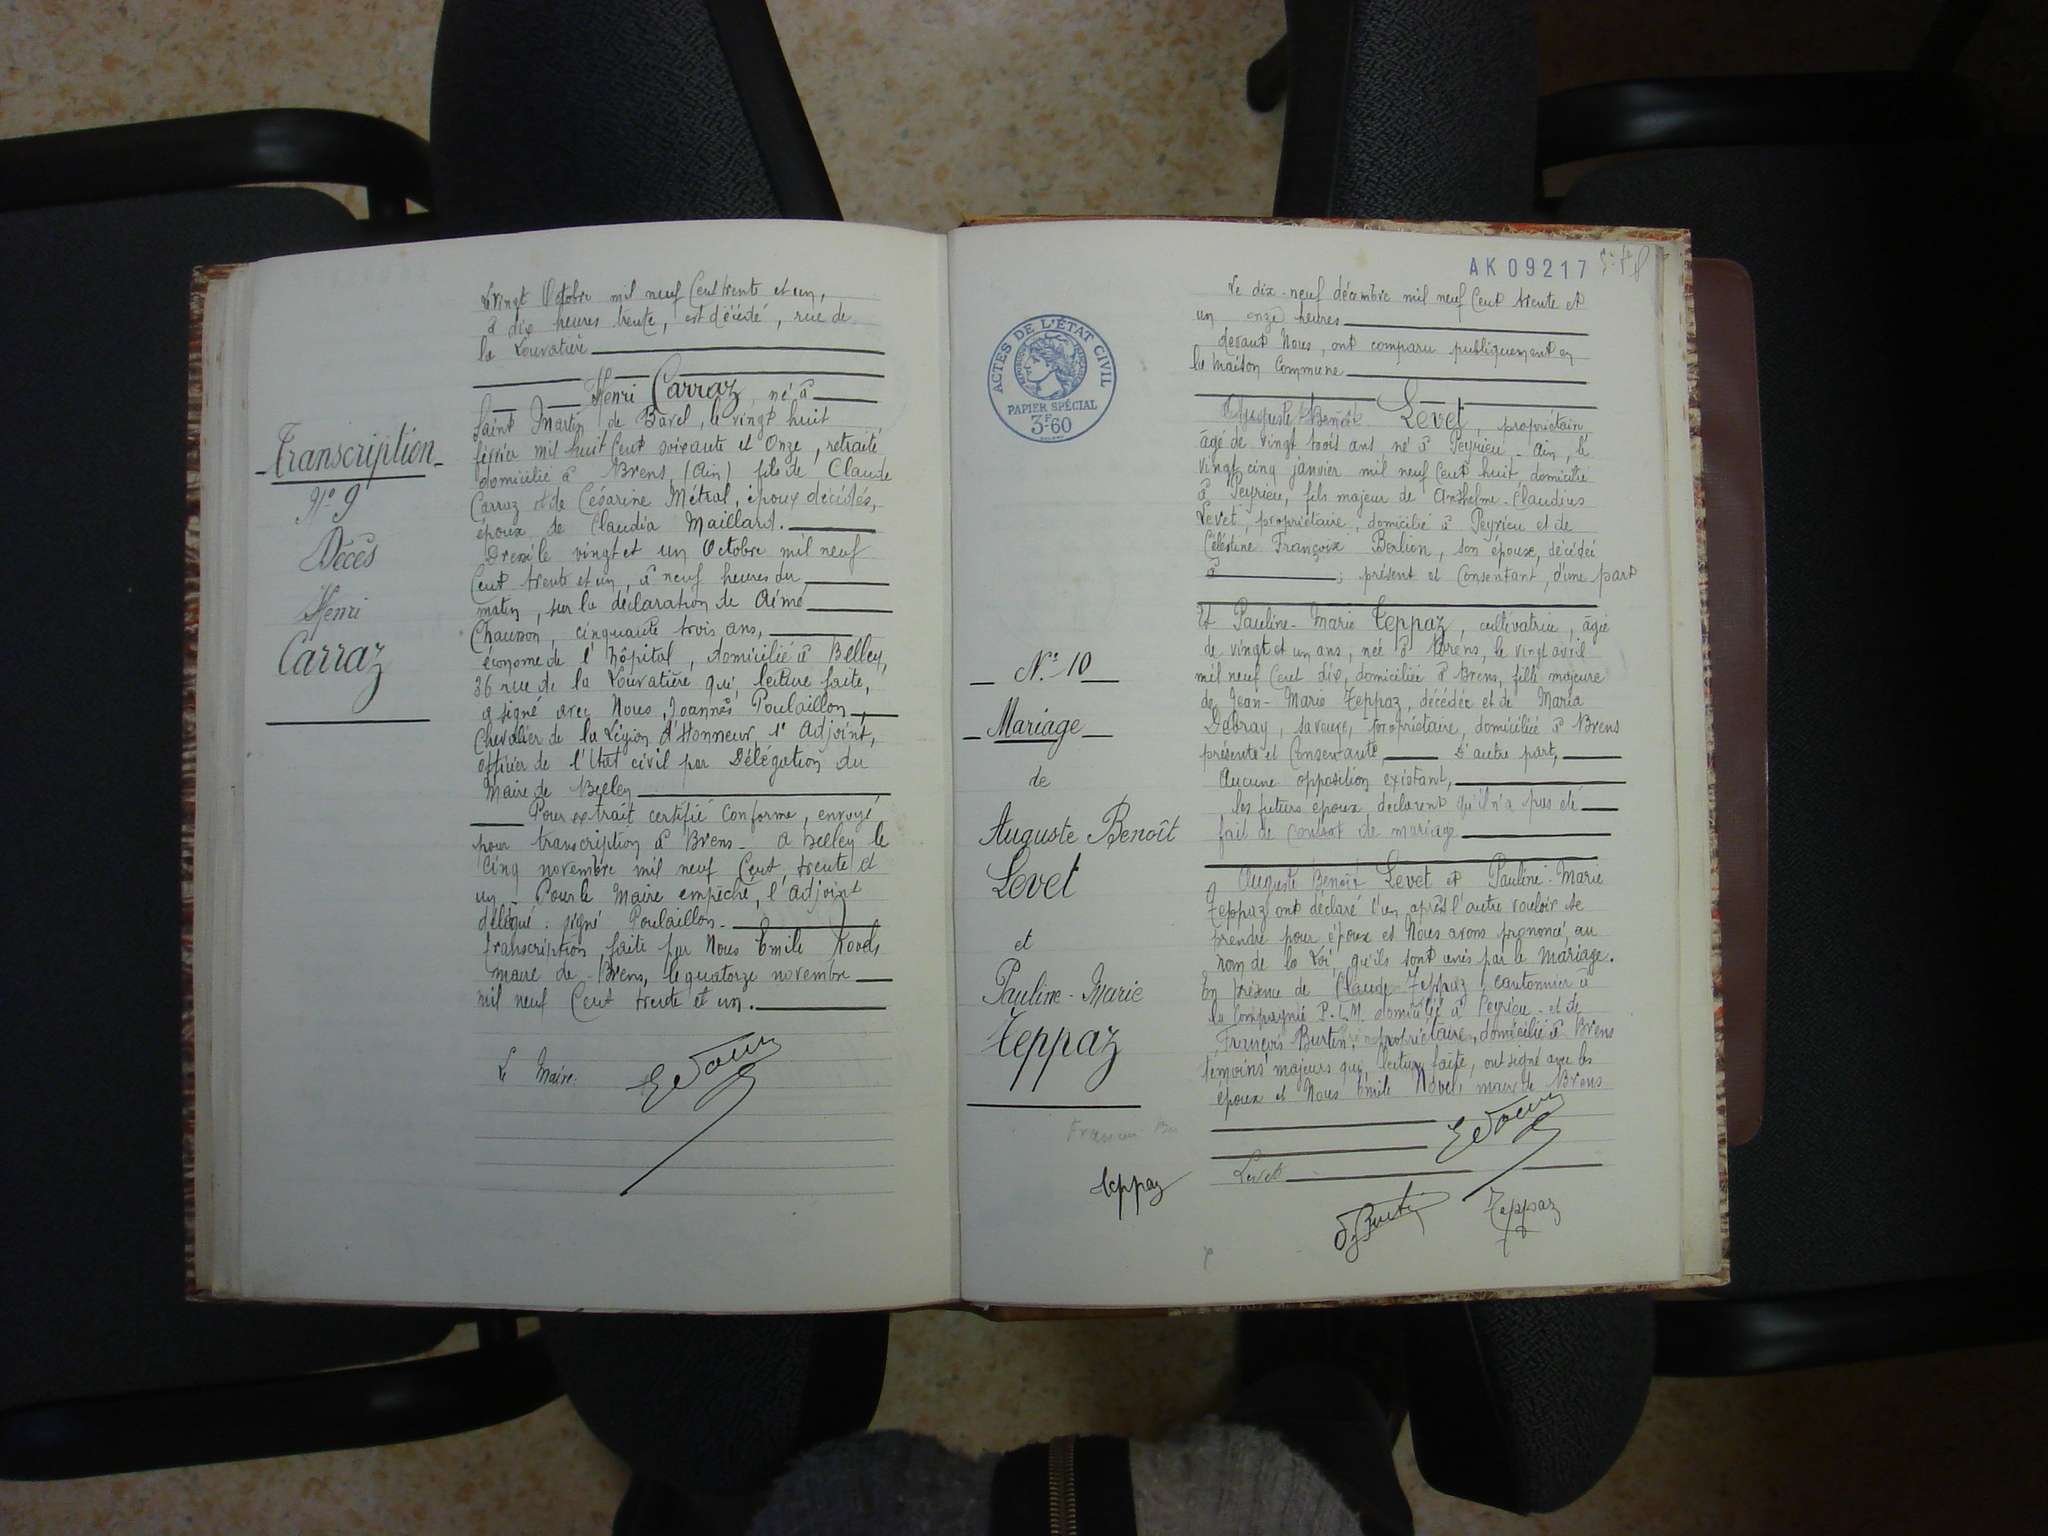 Transcription
N° 9
Décès
Henri
Carraz
Le vingt Octobre mil neuf Cent trente et un,
à dix heures trente, est décédé, rue de
la Louvatière
Henri Carraz, né à
Saint Martin de Bavel, le vingt huit
février mil huit Cent soixante et Onze, retraité,
domicilié à Brens, (Ain) fils de Claude
Carraz et de Césarine Métral, époux décédés,
époux de Claudia Maillard.
Dressé le vingt et un Octobre mil neuf
Cent trente et un, à neuf heures du
matin, sur la déclaration de Aimé
Chausson, cinquante trois ans,
économe de l'hôpital, domicilié à Belley,
36 rue de la Louvatière qui, lecture faite,
a signé avec Nous, Joannès Poulaillon,
Chevalier de la Légion d'Honneur, 1er Adjoint,
officier de l'état civil par Délégation du
Maire de Belley
Pour extrait certifié Conforme, envoyé
pour transcription à Brens - à Belley le
Cinq novembre mil neuf Cent, trente et
un - Pour le Maire empêché, l'adjoint
délégué : signé Poulaillon.
transcription faite par Nous Emile
maire de Brens, le quatorze novembre
mil neuf Cent trente et un.
Le Maire.
AK 09217
ACTES DE L'ÉTAT CIVIL
RÉPUBLIQUE FRANÇAISE
PAPIER SPÉCIAL
3F60
N° 10
Mariage
de
Auguste Benoît
Levet
et
Pauline-Marie
Teppaz
Le dix-neuf décembre mil neuf Cent trente et
un onze heures
devant Nous, ont comparu publiquement en
la maison Commune
Auguste Benoît Levet, propriétaire
âgé de vingt trois ans, né à Peyrieu - Ain, le
vingt cinq janvier mil neuf Cent huit, domicilié
à Peyrieu, fils majeur de Anthelme-Claudius
Levet, propriétaire, domicilié à Peyrieu et de
Célestine Françoise Berlion, son épouse, décédée
à ; présent et Consentant, d'une part
Et Pauline-Marie Teppaz, cultivatrice, âgée
de vingt et un ans, née à Brens, le vingt avril
mil neuf Cent dix, domiciliée à Brens, fille majeure
de Jean-Marie Teppaz, décédée et de Maria
sa veuve, propriétaire, domiciliée à Brens
présente et Consentante, d'autre part,
Aucune opposition existant,
les futurs époux déclarent qu'il n'a pas été
fait de contrat de mariage
Auguste Benoît Levet et Pauline-Marie
Teppaz ont déclaré l'un après l'autre vouloir se
prendre pour époux et Nous avons prononcé, au
nom de la Loi, qu'ils sont unis par le mariage.
En présence de Claude Teppaz, cantonnier à
la Compagnie P.L.M. domicilié à Peyrieu et de
François Burtin, propriétaire, domicilié à Brens
témoins majeurs qui, lecture faite, ont signé avec les
époux et Nous Emile maire de Brens
Levet
Teppaz
F. Burtin
Teppaz